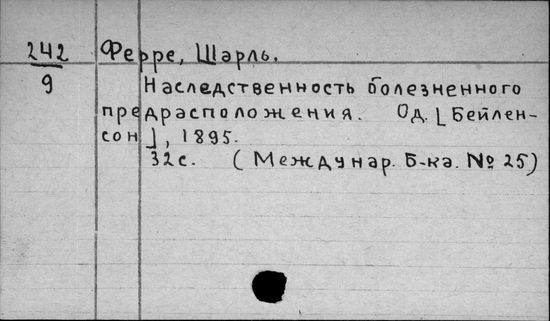 242 Ферре, Шарль.
9 Наследственность болезненного
предрасположения. Од. [Бейлен-
сон], 1895.
32с. (Междунар. Б-ка. № 25)